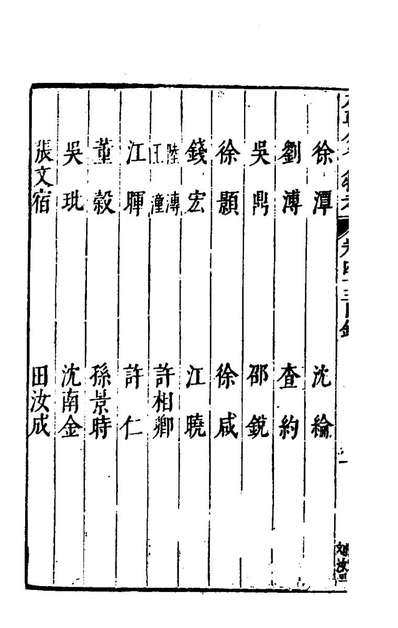 徐潭 沈綸
劉溥 查約
吳鼎 邵銳
徐顥 徐咸
錢宏 江曉
陸溥 王潼 許相卿
江暉 許仁
董穀 孫景時
吳玭 沈南金
張文宿 田汝成